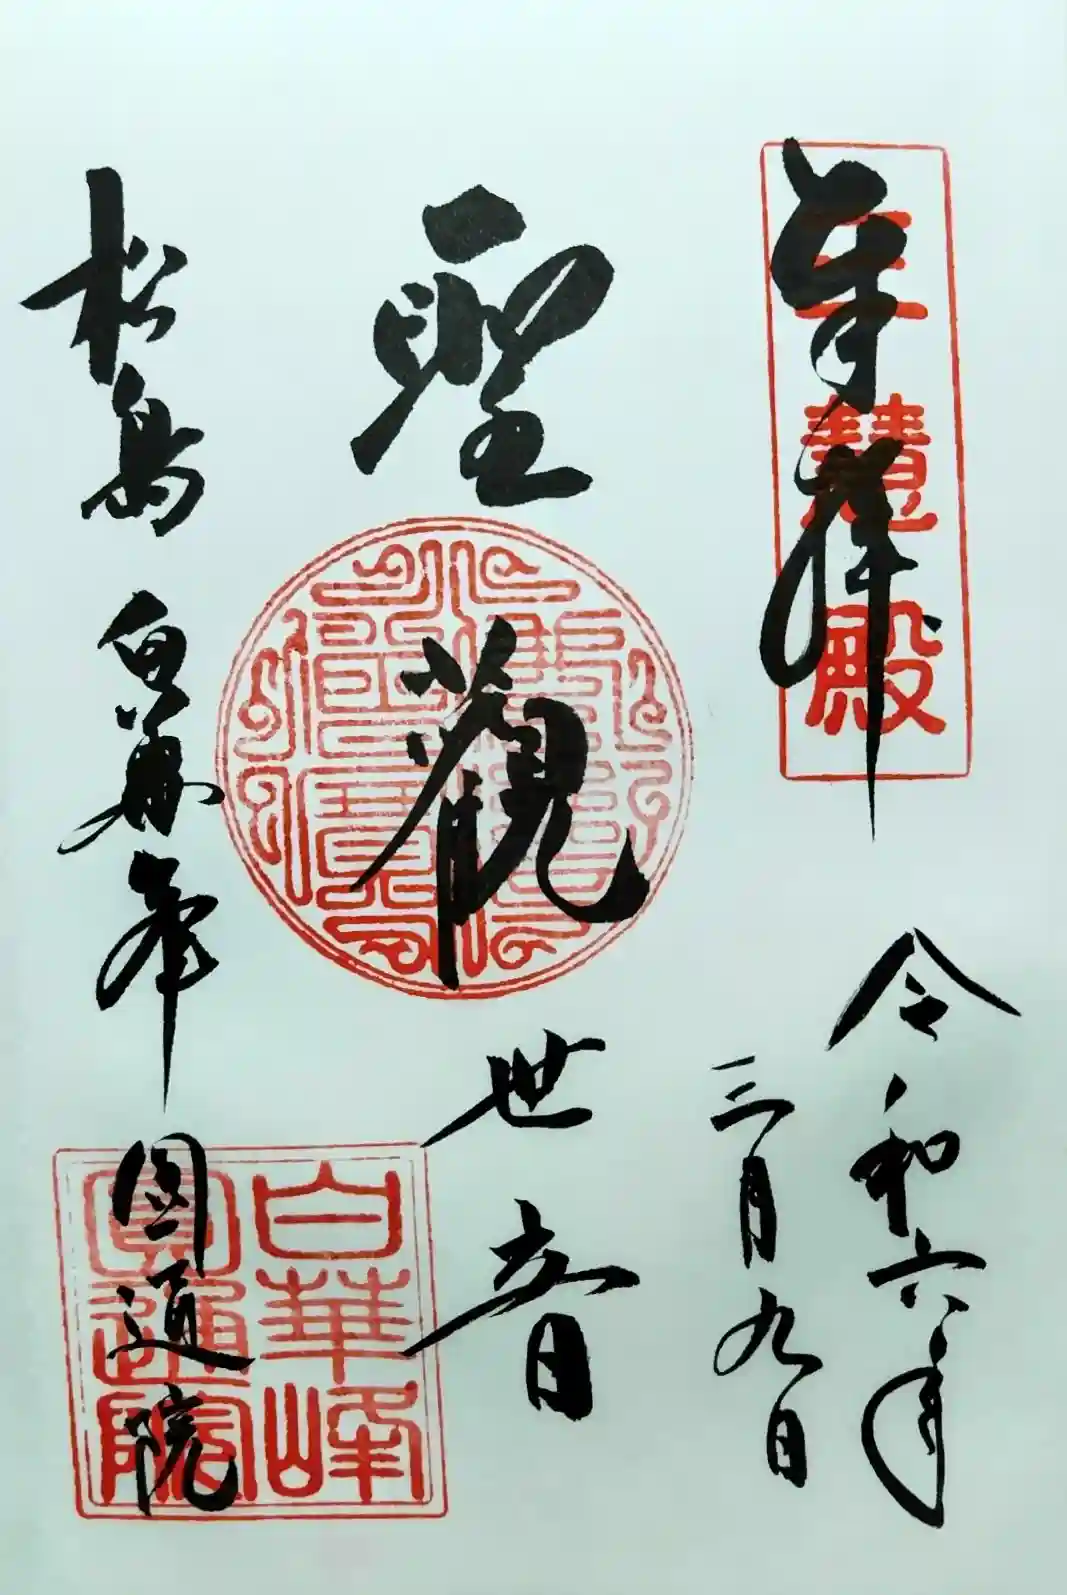 奉拝
三慧殿
令和六年
三月九日
聖観世音
松島 白華峰 圓通院
白華峰
圓通院